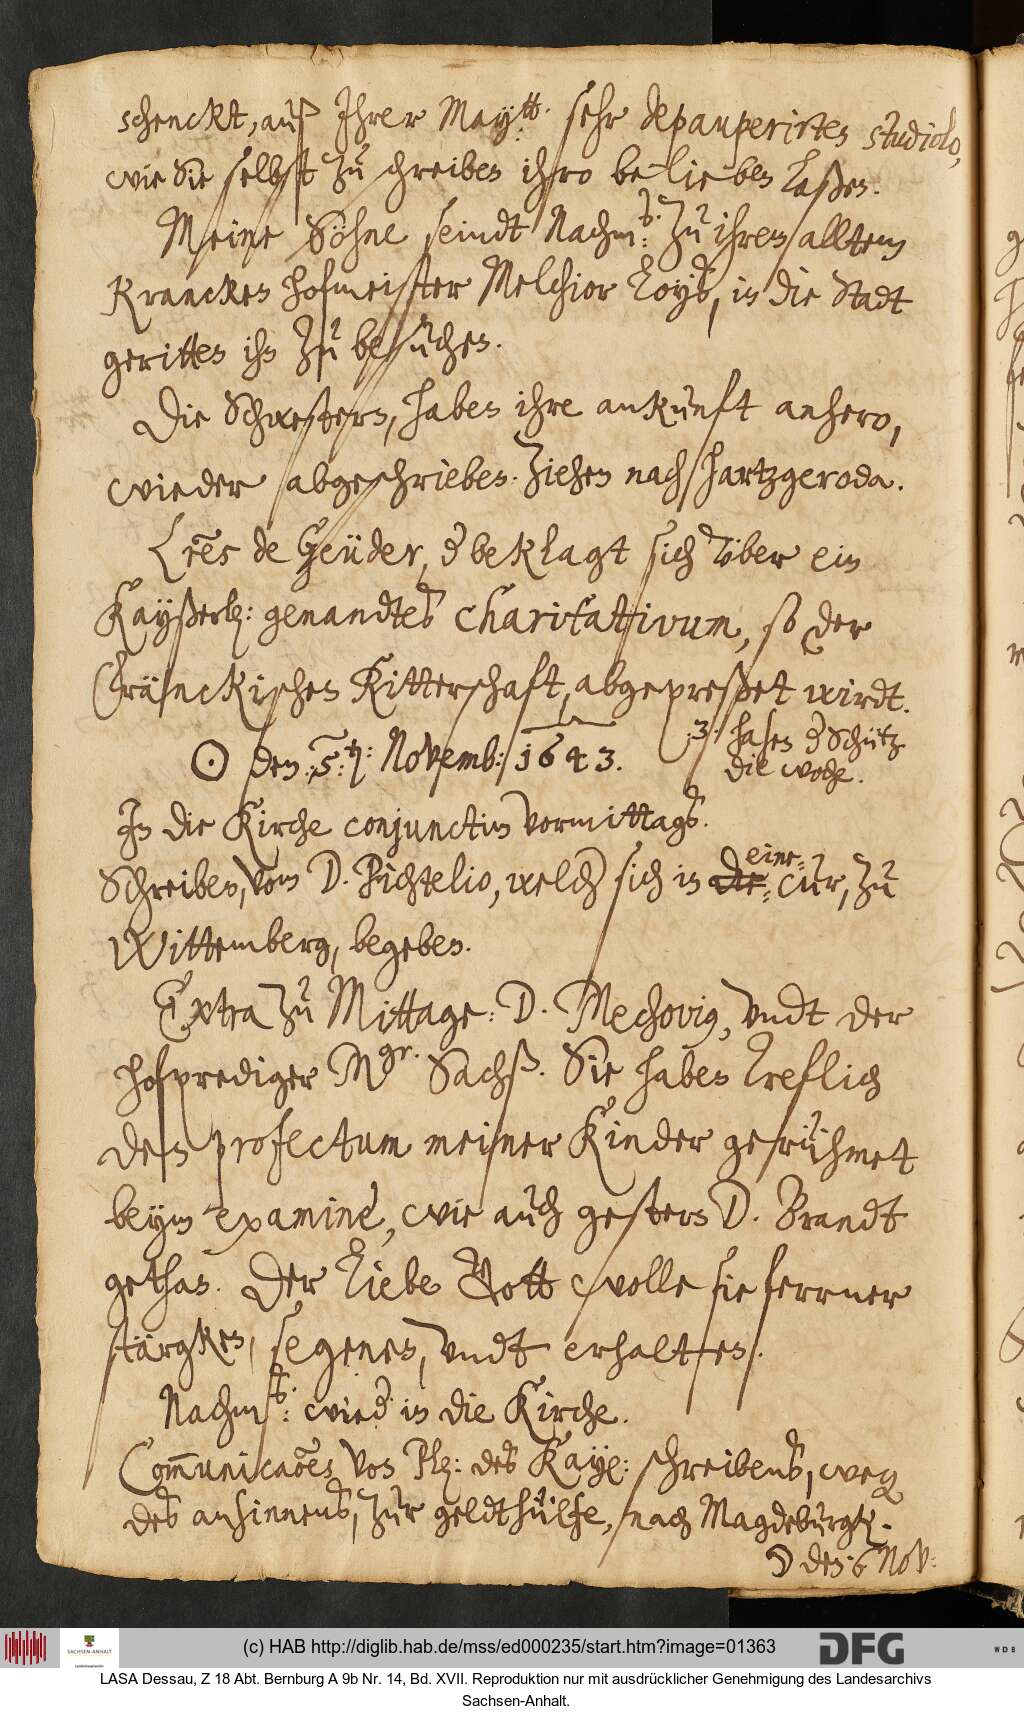 schenckt, auß Ihrer Maytt: sehr depauperirten studiolo,
wie Sie selbst zu schreiben ihro belieben laßen.
Meine Söhne seindt Nachmts: zu ihrem alltem
Krancken hofmeister Melchior Loyß, in die Stadt
geritten ihn zu besuchen.
Die Schwestern, haben ihre ankunft anhero,
wieder abgeschrieben. Ziehen nach hartzgeroda.
Lrẽs de Geüder, der beklagt sich über ein
Kayßerl: genandtes charitativum, so der
Fränckischen Ritterschaft, abgepreßet wirdt.
☉ den: 5. ten: Novemb: 1643.
3 hasen der Schütz
die woche.
In die Kirche conjunctim vormittags.
Schreiben, vom D. Pichtelio, welcher sich in die eine cur, zu
Wittemberg, begeben.
Extra zu Mittage: D. Mechovius, undt der
hofprediger Mgr. Sachß. Sie haben trefflich
den profectum meiner Kinder gerühmet
beym examine, wie auch gestern D. Brandt
gethan. Der liebe Gott wolle sie ferrner
stärgken, segenen, undt erhalten.
Nachmts: wieder in die Kirche.
Com̃unicaões von Pl: des Kay: schreibens, wegen
des ansinnens, zur geldthülfe, nach Magdeburgk.
☽ den: 6 Nov:
(c) HAB http://diglib.hab.de/mss/ed000235/start.htm?image=01363
SACHSEN-ANHALT
DFG
WDB
LASA Dessau, Z 18 Abt. Bernburg A 9b Nr. 14, Bd. XVII. Reproduktion nur mit ausdrücklicher Genehmigung des Landesarchivs
Sachsen-Anhalt.